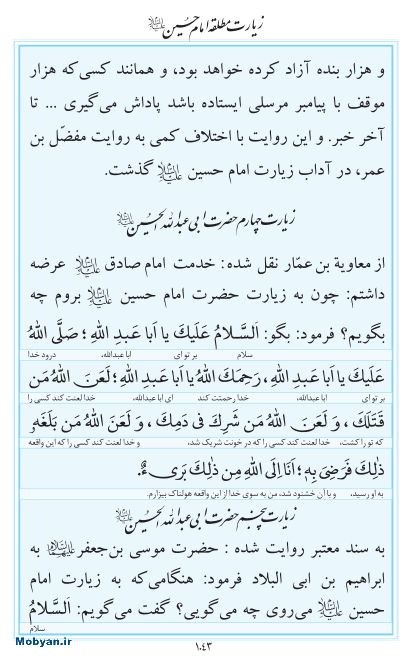 زیارت مطلقه امام حسین علیه‌السلام
و هزار بنده آزاد کرده خواهد بود، و همانند کسی‌که هزار
موقف با پیامبر مرسلی ایستاده باشد پاداش می‌گیری ... تا
آخر خبر. و این روایت با اختلاف کمی به روایت مفضّل بن
عمر، در آداب زیارت امام حسین علیه‌السلام گذشت.
زیارت چهارم حضرت ابی عبدالله الحسین علیه‌السلام
از معاویة بن عمّار نقل شده: خدمت امام صادق علیه‌السلام عرضه
داشتم: چون به زیارت حضرت امام حسین علیه‌السلام بروم چه
بگویم؟ فرمود: بگو: اَلسَّلامُ عَلَیْكَ یا اَبا عَبدِ اللهِ؛ صَلَّی اللهُ
سلام بر تو ای ابا عبدالله، درود خدا
عَلَیْكَ یا اَبا عَبدِ اللهِ، رَحِمَكَ اللهُ یا اَبا عَبدِ اللهِ؛ لَعَنَ اللهُ مَن
بر تو ای ابا عبدالله، خدا رحمتت کند ای ابا عبدالله، خدا لعنت کند کسی را
قَتَلَكَ، وَ لَعَنَ اللهُ مَن شَرِكَ فی دَمِكَ، وَ لَعَنَ اللهُ مَن بَلَغَهُ
که تو را کشت، خدا لعنت کند کسی را که در خونت شریک شد، و خدا لعنت کند کسی را که این واقعه
ذٰلِكَ فَرَضِیَ بِهِ؛ اَنَا اِلَی اللهِ مِن ذٰلِكَ بَریءٌ.
به او رسید، و با آن خشنود شد، من به سوی خدا از این واقعه هولناک بیزارم.
زیارت پنجم حضرت ابی عبدالله الحسین علیه‌السلام
به سند معتبر روایت شده : حضرت موسی بن‌جعفر علیهماالسلام به
ابراهیم بن ابی البلاد فرمود: هنگامی‌که به زیارت امام
حسین علیه‌السلام می‌روی چه می‌گویی؟ گفت می‌گویم: اَلسَّلامُ
سلام
۱۰۴۳
Mobyan.ir